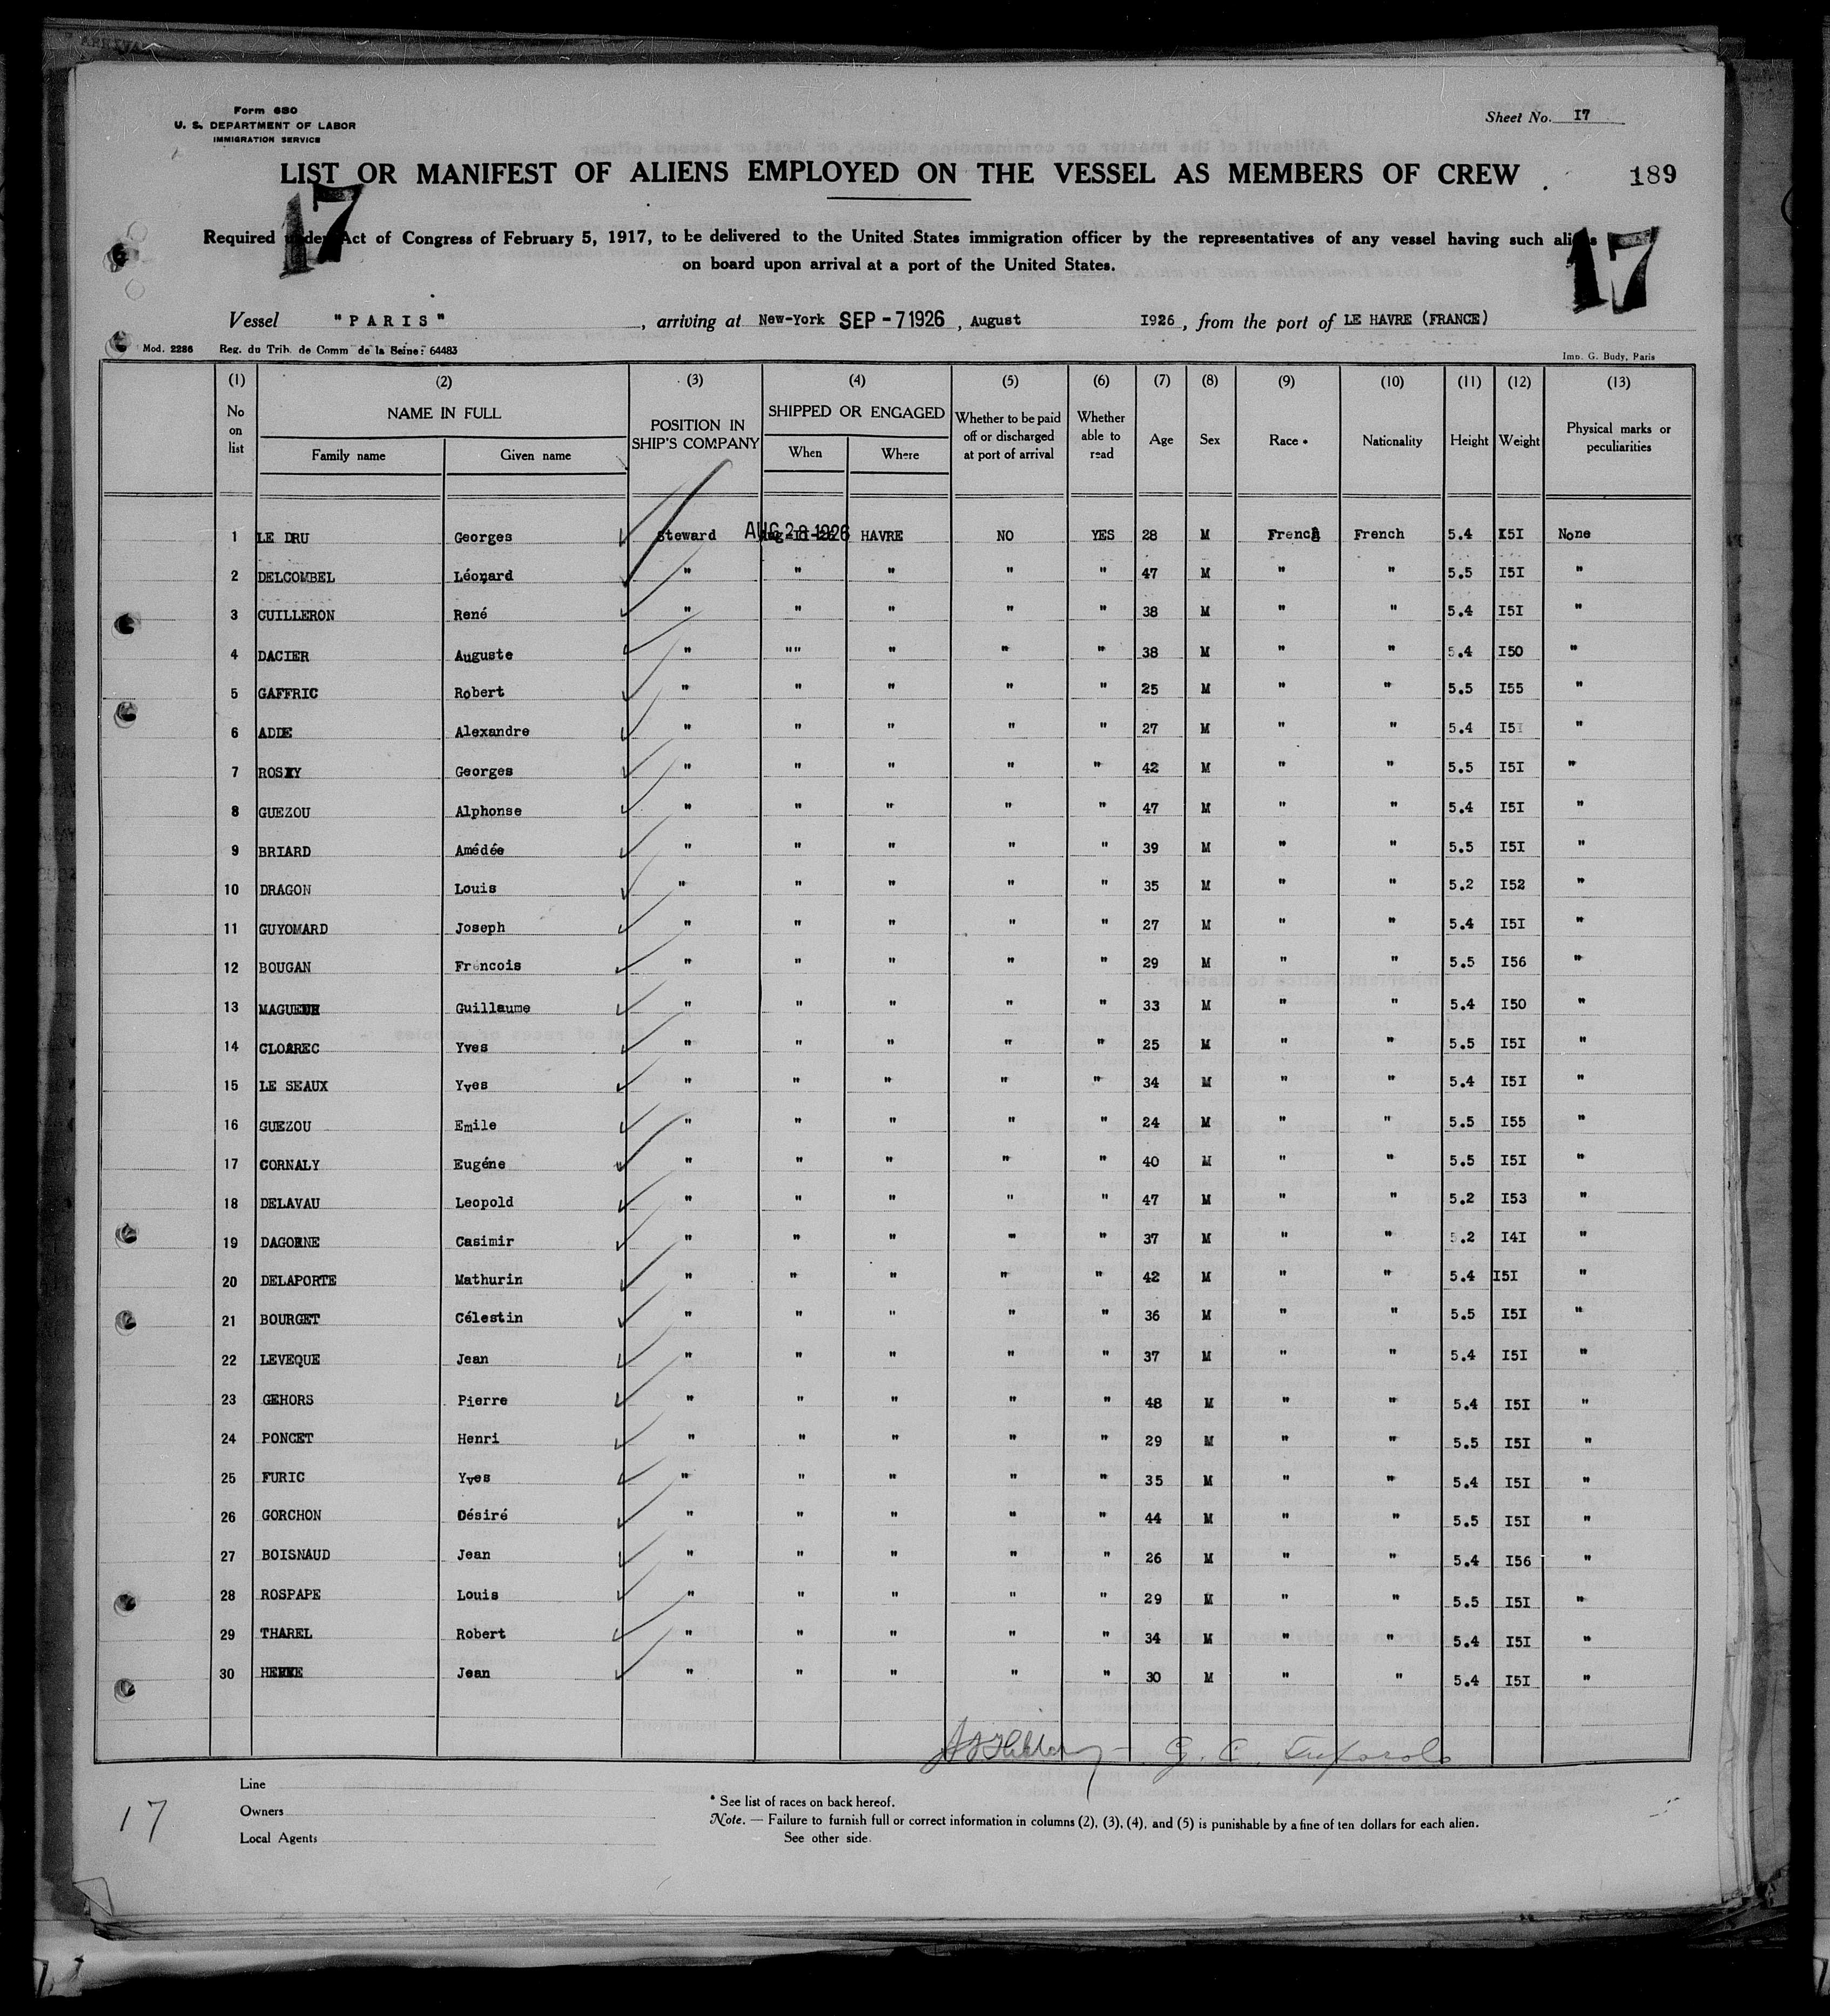 Form 680
U. S. DEPARTMENT OF LABOR
IMMIGRATION SERVICE
Sheet No. I7
LIST OR MANIFEST OF ALIENS EMPLOYED ON THE VESSEL AS MEMBERS OF CREW
189
17
17
Required under Act of Congress of February 5, 1917, to be delivered to the United States immigration officer by the representatives of any vessel having such aliens
on board upon arrival at a port of the United States.
Vessel "PARIS", arriving at New-York SEP -7 1926, August I926, from the port of LE HAVRE (FRANCE)
Mod. 2286 Reg. du Trib. de Comm de la Seine: 64483
Imp. G. Budy, Paris
(1) (2) (3) (4) (5) (6) (7) (8) (9) (10) (11) (12) (13)
No on list NAME IN FULL Family name Given name POSITION IN SHIP'S COMPANY SHIPPED OR ENGAGED When Where Whether to be paid off or discharged at port of arrival Whether able to read Age Sex Race * Nationality Height Weight Physical marks or peculiarities
1 LE DRU Georges Steward AUG 28 1926 HAVRE NO YES 28 M French French 5.4 I5I None
2 DELCOMBEL Léonard " " " " " 47 M " " 5.5 I5I "
3 CUILLERON René " " " " " 38 M " " 5.4 I5I "
4 DACIER Auguste " "" " " " 38 M " " 5.4 I50 "
5 GAFFRIC Robert " " " " " 25 M " " 5.5 I55 "
6 ADIE Alexandre " " " " " 27 M " " 5.4 I5I "
7 Georges " " " " " 42 M " " 5.5 I5I "
8 GUEZOU Alphonse " " " " " 47 M " " 5.4 I5I "
9 BRIARD Amédée " " " " " 39 M " " 5.5 I5I "
10 DRAGON Louis " " " " " 35 M " " 5.2 I52 "
11 GUYOMARD Joseph " " " " " 27 M " " 5.4 I5I "
12 BOUGAN Francois " " " " " 29 M " " 5.5 I56 "
13 Guillaume " " " " " 33 M " " 5.4 I50 "
14 CLOAREC Yves " " " " " 25 M " " 5.5 I5I "
15 LE SEAUX Yves " " " " " 34 M " " 5.4 I5I "
16 GUEZOU Emile " " " " " 24 M " " 5.5 I55 "
17 CORNALY Eugéne " " " " " 40 M " " 5.5 I5I "
18 DELAVAU Leopold " " " " " 47 M " " 5.2 I53 "
19 DAGORNE Casimir " " " " " 37 M " " 5.2 I4I "
20 DELAPORTE Mathurin " " " " " 42 M " " 5.4 I5I "
21 BOURGET Célestin " " " " " 36 M " " 5.5 I5I "
22 LEVEQUE Jean " " " " " 37 M " " 5.4 I5I "
23 GEHORS Pierre " " " " " 48 M " " 5.4 I5I "
24 PONCET Henri " " " " " 29 M " " 5.5 I5I "
25 FURIC Yves " " " " " 35 M " " 5.4 I5I "
26 GORCHON Désiré " " " " " 44 M " " 5.5 I5I "
27 BOISNAUD Jean " " " " " 26 M " " 5.4 I56 "
28 ROSPAPE Louis " " " " " 29 M " " 5.5 I5I "
29 THAREL Robert " " " " " 34 M " " 5.4 I5I "
30 Jean " " " " " 30 M " " 5.4 I5I "
G. C.
Line
Owners
Local Agents
17
* See list of races on back hereof.
Note. — Failure to furnish full or correct information in columns (2), (3), (4), and (5) is punishable by a fine of ten dollars for each alien.
See other side.